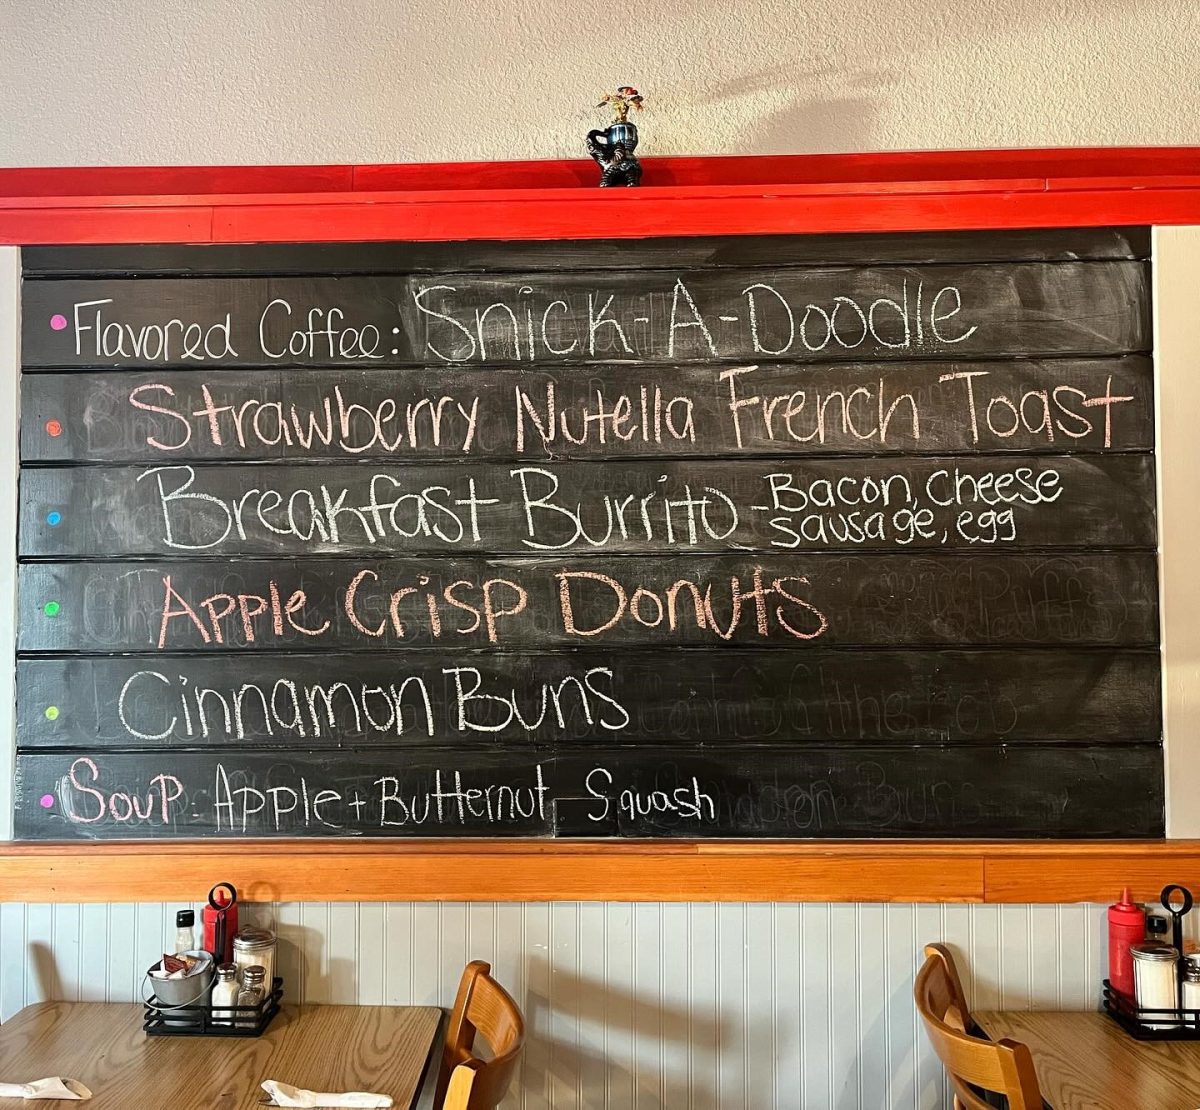 Flavored Coffee: Snick-A-Doodle
Strawberry Nutella French Toast
Breakfast Burrito - Bacon, Cheese
sausage, egg
Apple Crisp Donuts
Cinnamon Buns
Soup - Apple + Butternut Squash